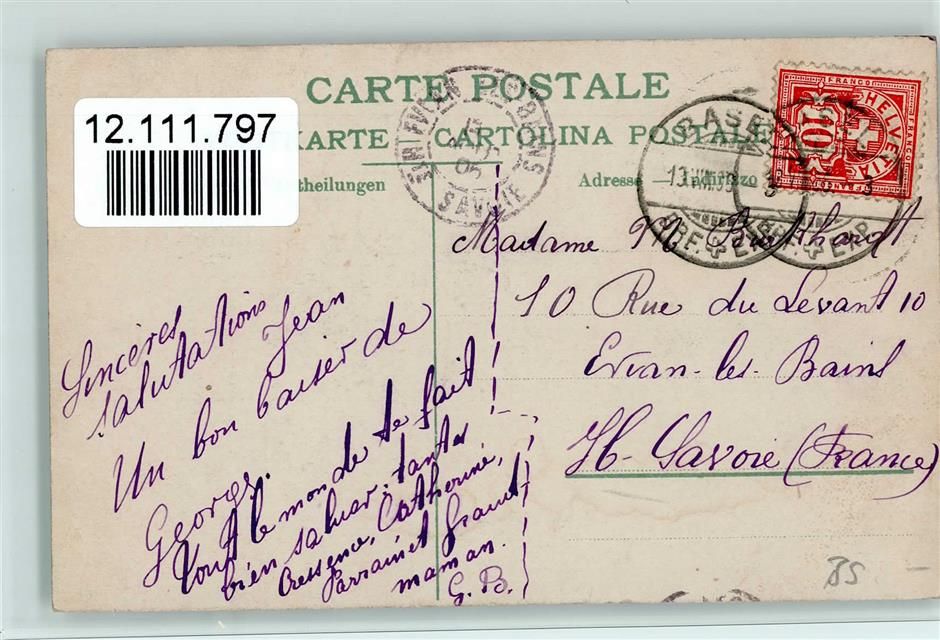 CARTE POSTALE
12.111.797
KARTE CARTOLINA POSTALE
theilungen
Adresse Indirizzo
SAVOIE
BASEL
BRF. EXP.
BRF. EXP.
FRANCO
HELVETIA
10
Madame M. Burkhardt
10 Rue du Levant 10
Evian-les-Bains
Hte-Savoie (France)
Sincères
salutations
Jean
Un bon baiser de
George.
Tout le monde te fait
bien saluer. tantes
Cressence, Catherine,
Parrain et Grand-
maman.
G. B.
BS